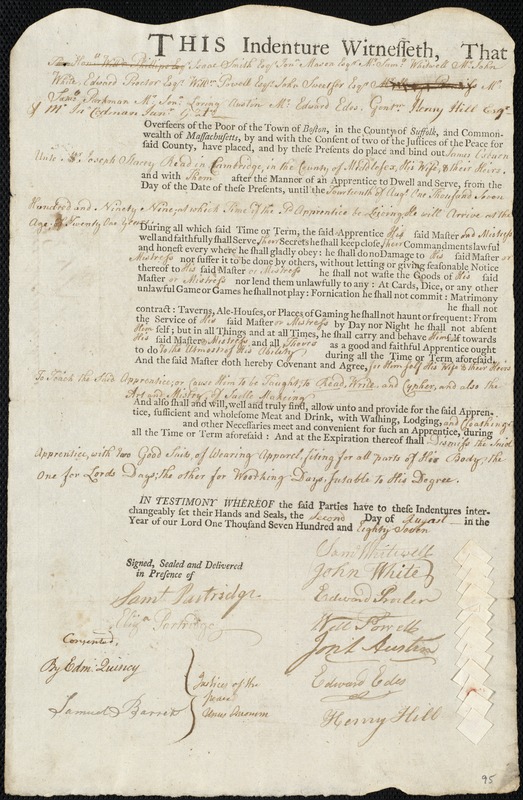 THIS Indenture Witnesseth, That
Isaac Smith Esqr Jona Mason Esqr Mr Saml Whitwell Mr John
White, Edward Proctor Esqr Willm Powell Esqr John Sweetser Esqr Mr
Saml Parkman Mr Jona Loring Austin Mr Edward Edes, Gentn Henry Hill Esqr
& Mr Jn Codman Junr
Overseers of the Poor of the Town of Boston, in the County of Suffolk, and Common-
wealth of Massachusetts, by and with the Consent of two of the Justices of the Peace for
said County, have placed, and by these Presents do place and bind out James
Unto Joseph Read in Cambridge, in the County of Middlesex, His Wife, & their Heirs.
and with Them after the Manner of an Apprentice to Dwell and Serve, from the
Day of the Date of these Presents, until the Fourteenth of Augt One thousand Seven
Hundred and Ninety Nine, at which Time if the sd Apprentice be Living, He will Arrive at the
Age of Twenty One Years:
During all which said Time or Term, the said Apprentice His said Master and Mistress
well and faithfully shall Serve, Their Secrets he shall keep close, Their Commandments lawful
and honest every where he shall gladly obey: he shall do no Damage to His said Master or
Mistress nor suffer it to be done by others, without letting or giving seasonable Notice
thereof to His said Master or Mistress he shall not waste the Goods of His said
Master or Mistress nor lend them unlawfully to any: At Cards, Dice, or any other
unlawful Game or Games he shall not play: Fornication he shall not commit: Matrimony
he shall not
contract: Taverns, Ale-Houses, or Places of Gaming he shall not haunt or frequent: From
the Service of His said Master or Mistress by Day nor Night he shall not absent
Him self; but in all Things and at all Times, he shall carry and behave Him self towards
His said Master & Mistress, and all Theirs as a good and faithful Apprentice ought
to do to the Utmost of His Ability during all the Time or Term aforesaid,
And the said Master doth hereby Covenant and Agree, for Himself His Wife & their Heirs
To Teach the Said Apprentice; or Cause Him to be Taught, to Read, Write and Cypher, and also the
Art and Mistry of Sadle Makeing
And also shall and will, well and truly find, allow unto and provide for the said Appren-
tice, sufficient and wholesome Meat and Drink, with Washing, Lodging, and Cloathing
and other Necessaries meet and convenient for such an Apprentice, during
all the Time or Term aforesaid: And at the Expiration thereof shall Dismiss the Said
Apprentice, with two Good Suits of Wearing Apparel, fiting for all parts of His Body, the
One for Lords Days; the other for Working Days, sutable to His Degree.
IN TESTIMONY WHEREOF the said Parties have to these Indentures inter-
changeably set their Hands and Seals, the Second Day of August in the
Year of our Lord One Thousand Seven Hundred and Eighty Seven
Signed, Sealed and Delivered
in Presence of
Saml Partridge
Partridge
Saml Whitwell
John White
Edward Proctor
Will Powell
Jon L Austin
Edward Edes
Henry Hill
Consented,
By Edm Quincy
Samuel Barrett
Justices of the
peace
Unus Quorum
95